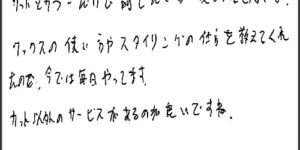 ワックスの使い方やスタイリングの仕方を教えてくれ
たので、今では毎日やってます。
カット以外のサービスがあるのが良いですね。